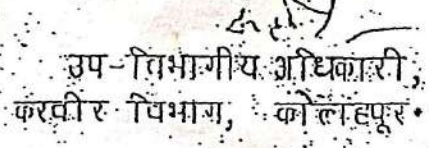 उप-विभागीय अधिकारी,
करवीर विभाग, कोल्हापूर.